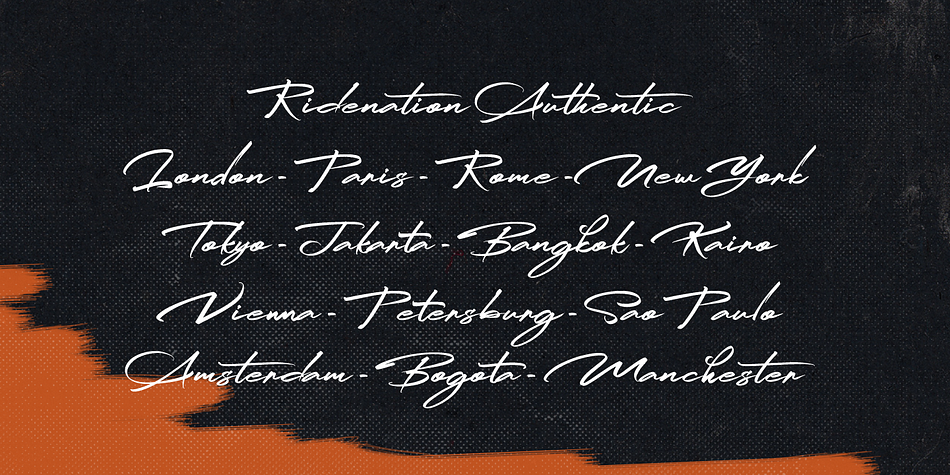 Ridenation Authentic
London - Paris - Rome - New York
Tokyo - Jakarta - Bangkok - Kairo
Vienna - Petersburg - Sao Paulo
Amsterdam - Bogota - Manchester